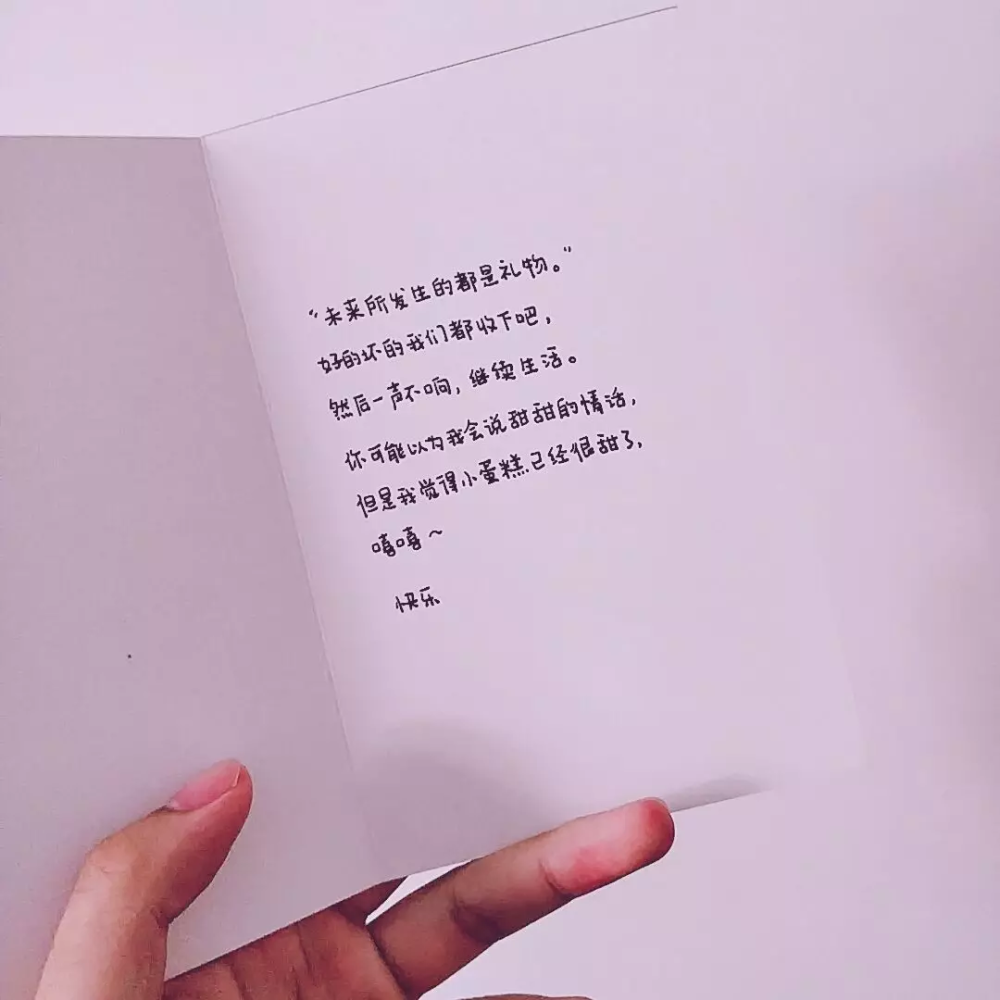 “未来所发生的都是礼物。”
好的坏的我们都收下吧，
然后一声不响，继续生活。
你可能以为我会说甜甜的情话，
但是我觉得小蛋糕已经很甜了，
嘻嘻～
快乐